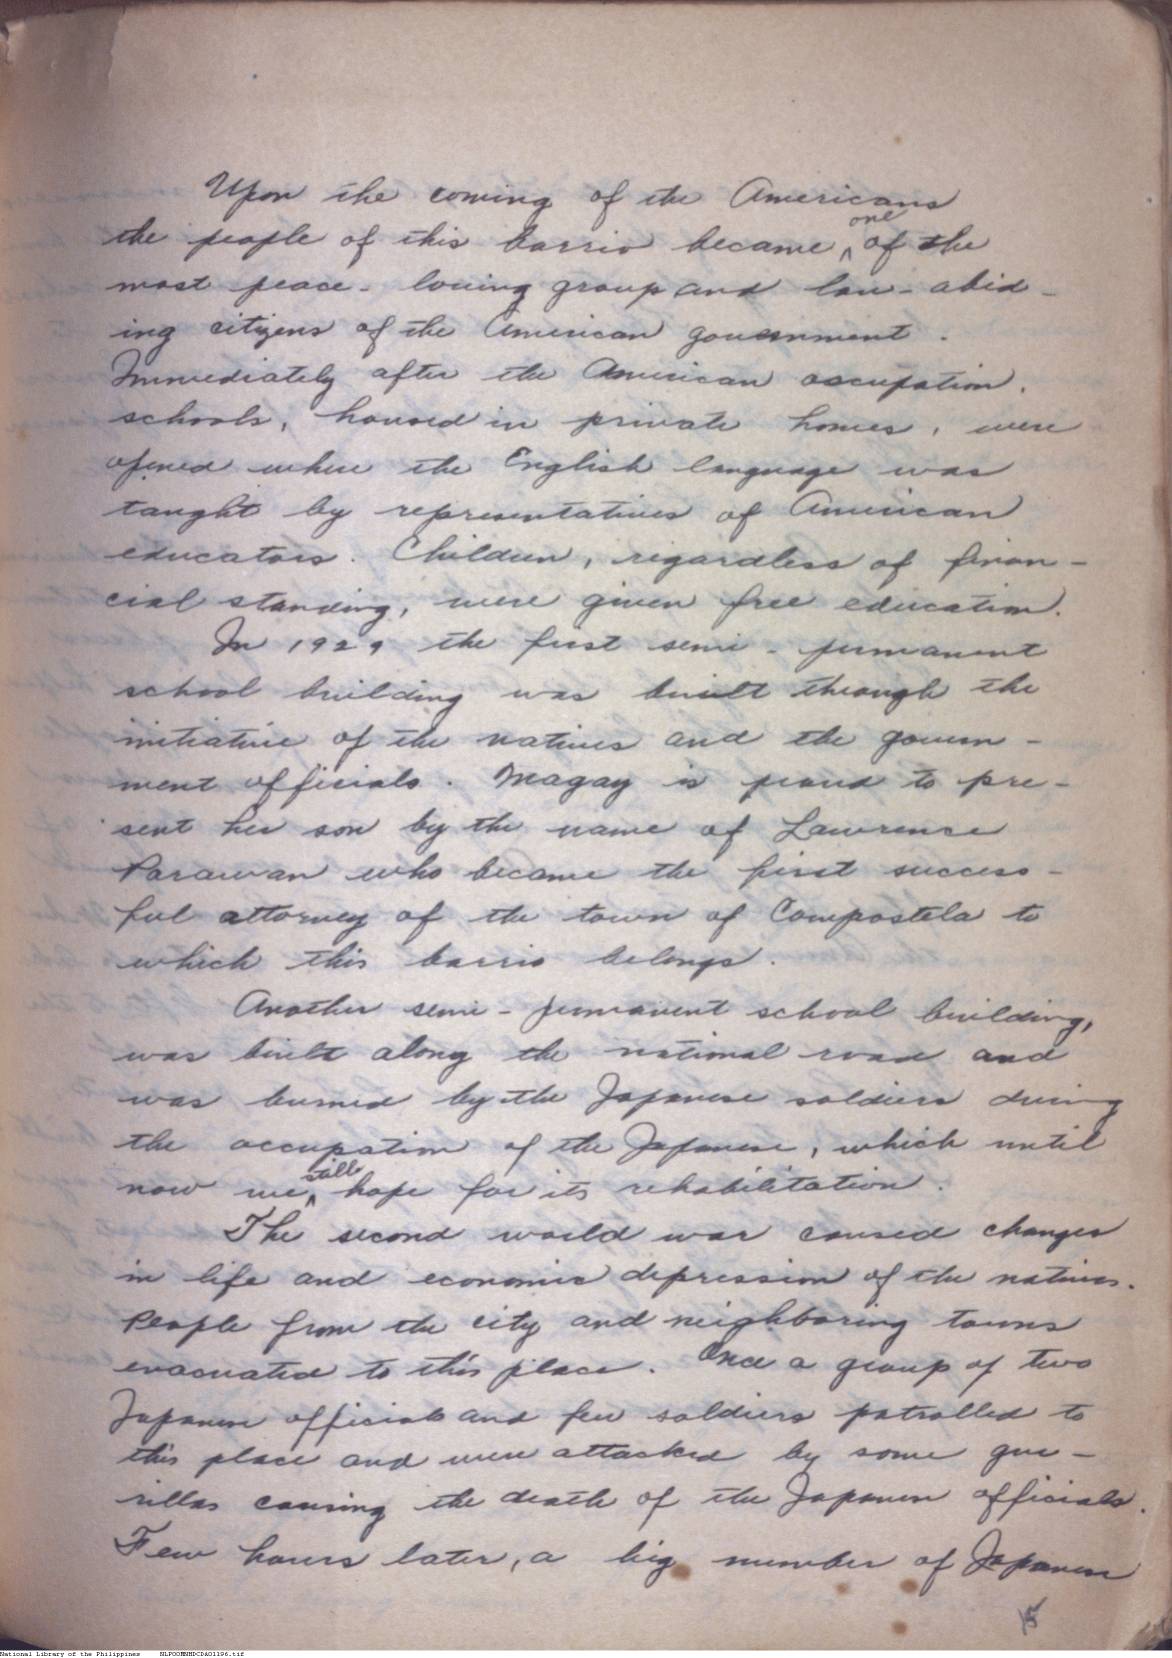 Upon the coming of the Americans
the people of this barrio became one of the
most peace-loving group and law-abid-
ing citizens of the American government.
Immediately after the American occupation,
schools, housed in private homes, were
opened where the English language was
taught by representatives of American
educators. Children, regardless of finan-
cial standing, were given free education.
In 1929 the first semi-permanent
school building was built through the
initiative of the natives and the govern-
ment officials. Magay is proud to pre-
sent her son by the name of Lawrence
Parawan who became the first success-
ful attorney of the town of Compostela to
which this barrio belongs.
Another semi-permanent school building,
was built along the national road and
was burned by the Japanese soldiers during
the occupation of the Japanese, which until
now we still hope for its rehabilitation.
The second world war caused changes
in life and economic depression of the natives.
People from the city and neighboring towns
evacuated to this place. Once a group of two
Japanese officials and few soldiers patrolled to
this place and were attacked by some gue-
rillas causing the death of the Japanese officials.
Few hours later, a big number of Japanese
National Library of the Philippines NLPOOMNHDCDA01196.tif